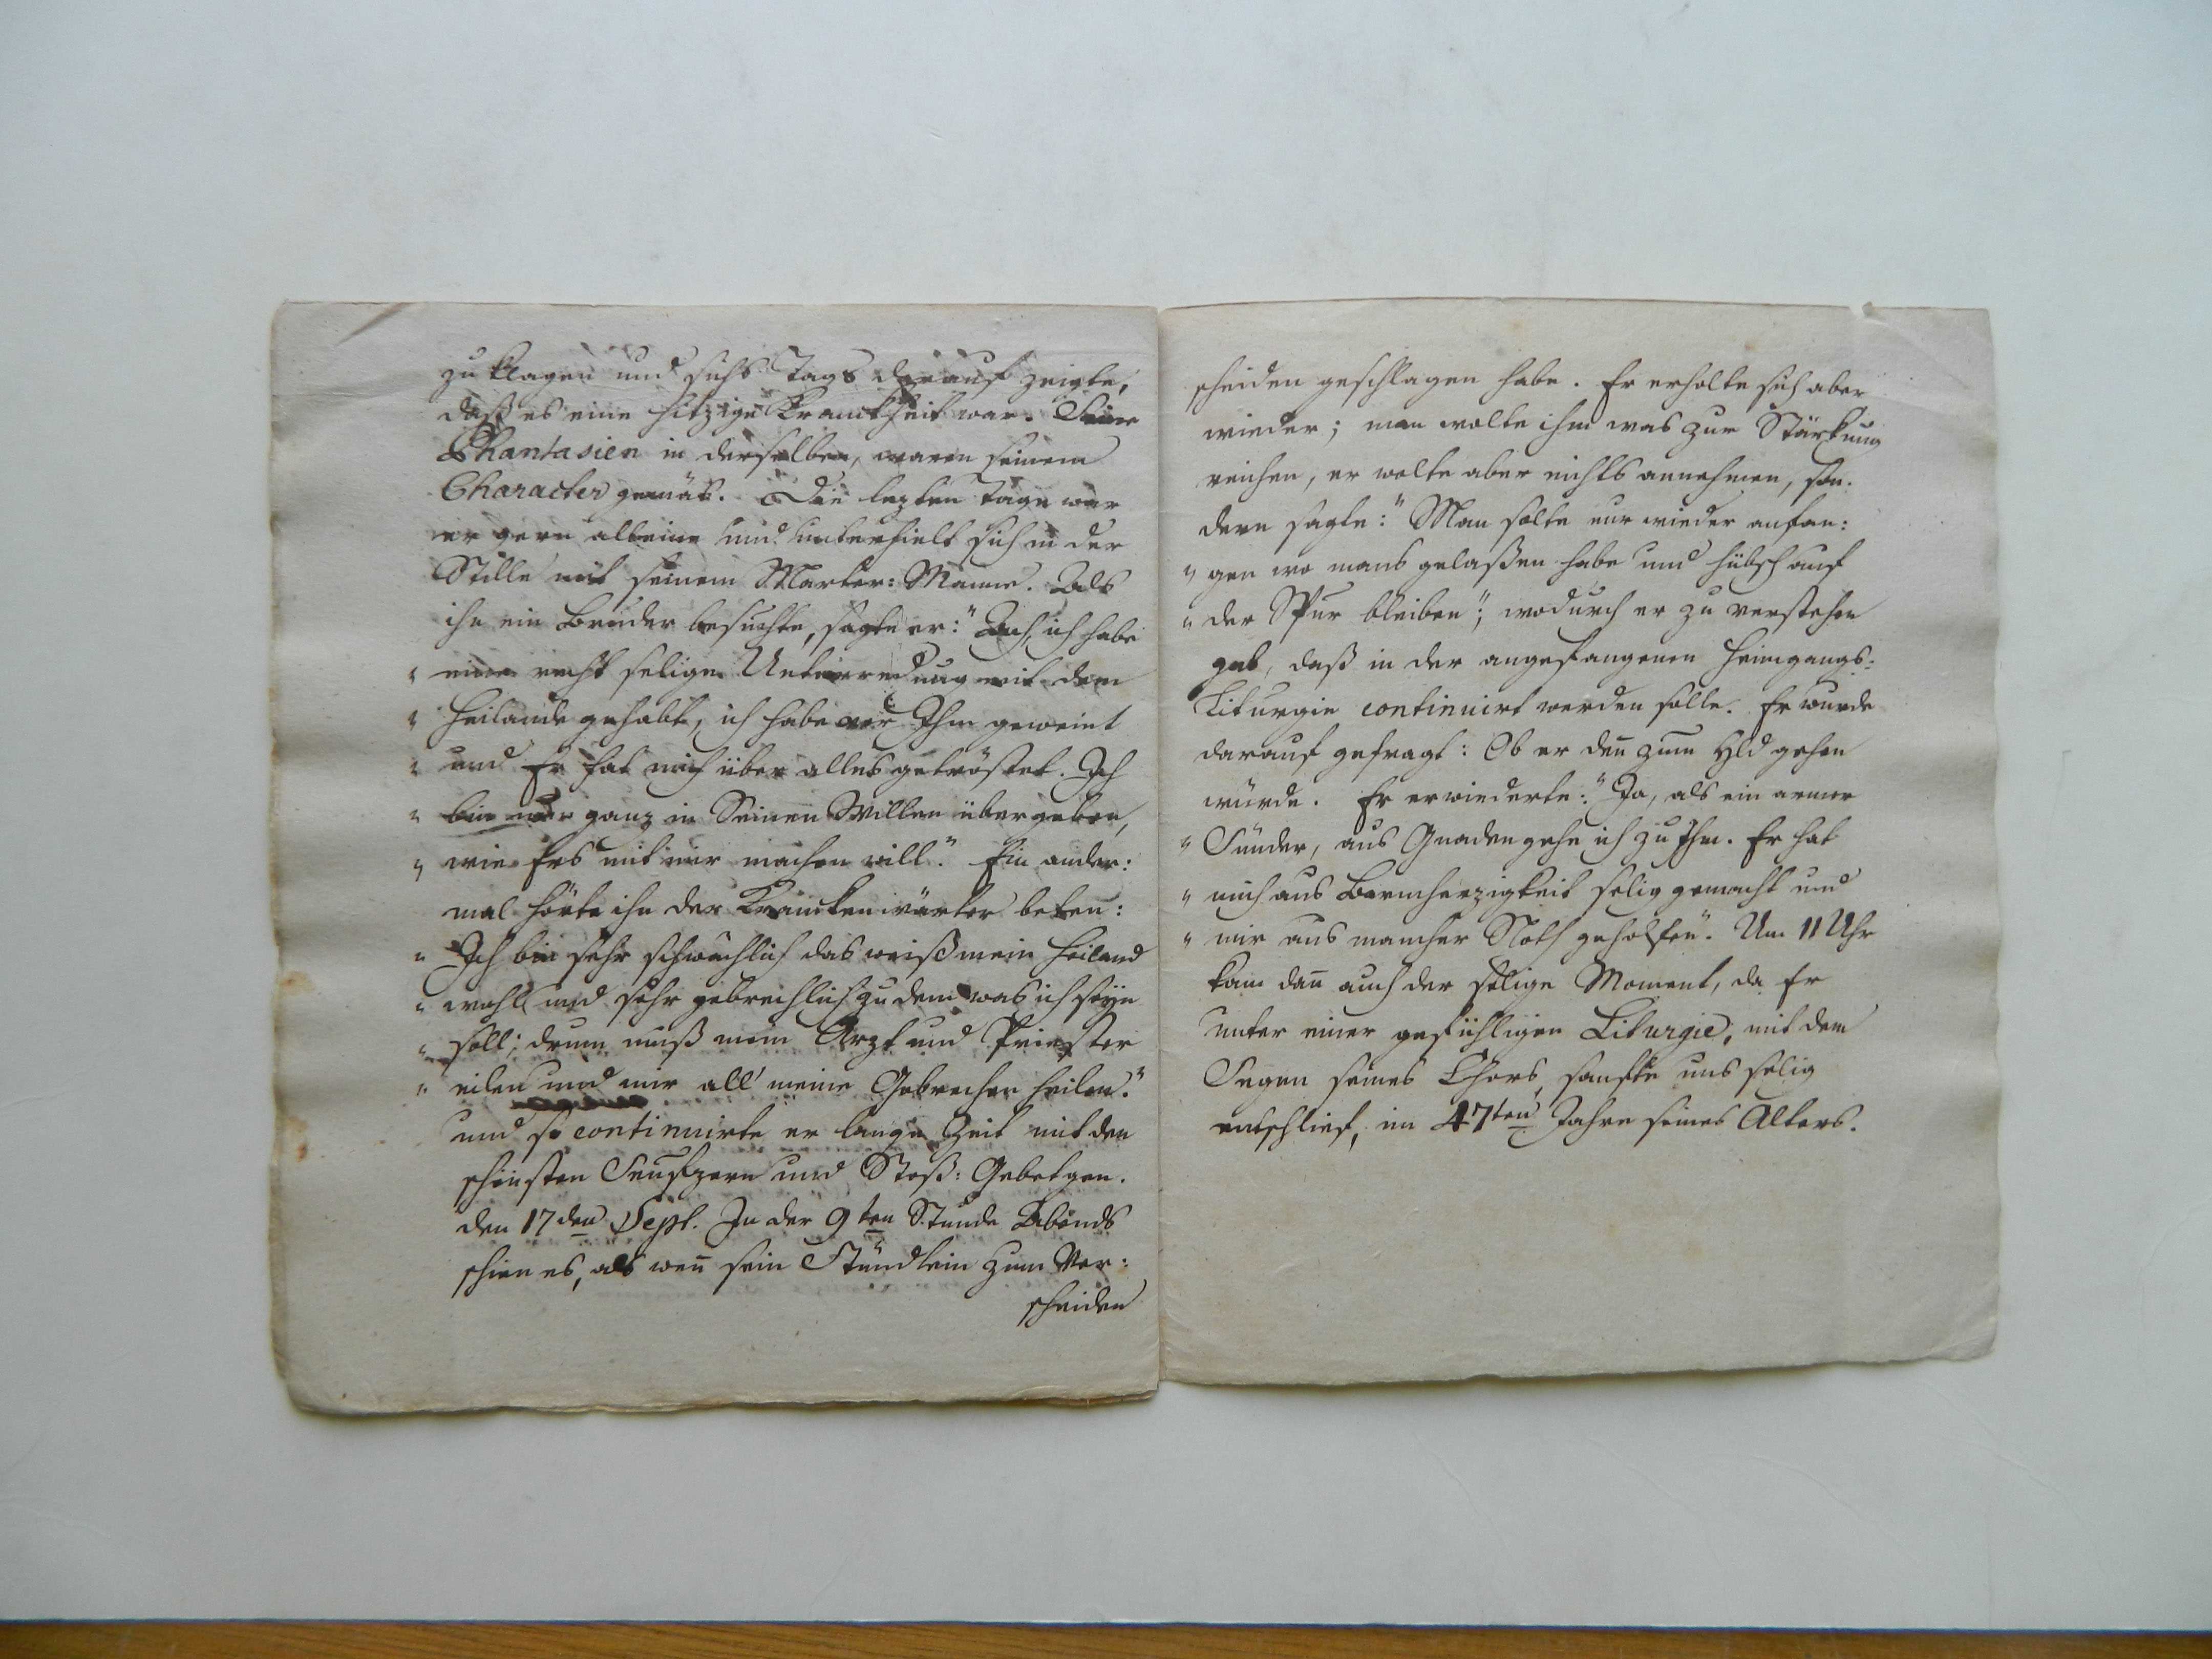 zu klagen und sichs Tags darauf zeigte,
daß es eine hitzige Kranckheit war. Seine
Phantasien in derselben, waren seinem
Character gemäs. Die lezten Tage war
er gern alleine und unterhielt sich in der
Stille mit seinem Marter: Manne. Als
ihn ein Bruder besuchte, sagte er: "Ach, ich habe
" eine recht selige Unterredung mit dem
" Heilande gehabt, ich habe vor Ihm geweint
" und Er hat mich über alles getröstet. Ich
" bin nur ganz in Seinen Willen übergeben,
" wie Ers mit mir machen will." Ein ander:
mal hörte ihn der Kranckenwärter beten:
" Ich bin sehr schwächlich das weiß mein Heiland
" wohl und sehr gebrechlich zu dem was ich seyn
" soll; drum muß mein Arzt und Priester
" eilen und mir all' meine Gebrechen heilen."
und so continuirte er lange Zeit mit den
schönsten Seufzern und Stoß: Gebetgen.
den 17den Sept. In der 9ten Stunde Abends
schien es, als weñ sein Stündlein zum Ver:
scheiden
scheiden geschlagen habe. Er erholte sich aber
wieder; man wolte ihm was zur Stärkung
reichen, er wolte aber nichts annehmen, son:
dern sagte: "Man solte nur wieder anfan:
" gen wo mans gelaßen habe und hübsch auf
" der Spur bleiben"; wodurch er zu verstehen
gab, daß in der angefangenen Heimgangs:
Liturgie continuirt werden solle. Er wurde
darauf gefragt: Ob er deñ zum Hld gehen
würde. Er erwiederte: "Ja, als ein armer
" Sünder, aus Gnaden gehe ich zu Ihm. Er hat
" mich aus Barmherzigkeit selig gemacht und
" mir aus mancher Noth geholfen". Um 11 Uhr
kam dañ auch der selige Moment, da Er
unter einer gefühligen Liturgie, mit dem
Segen seines Chors, sanfte und selig
entschlief, im 47ten Jahre seines Alters.